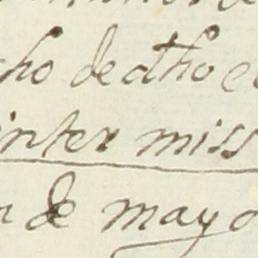 ho de dho e
inter miss
n de mayo